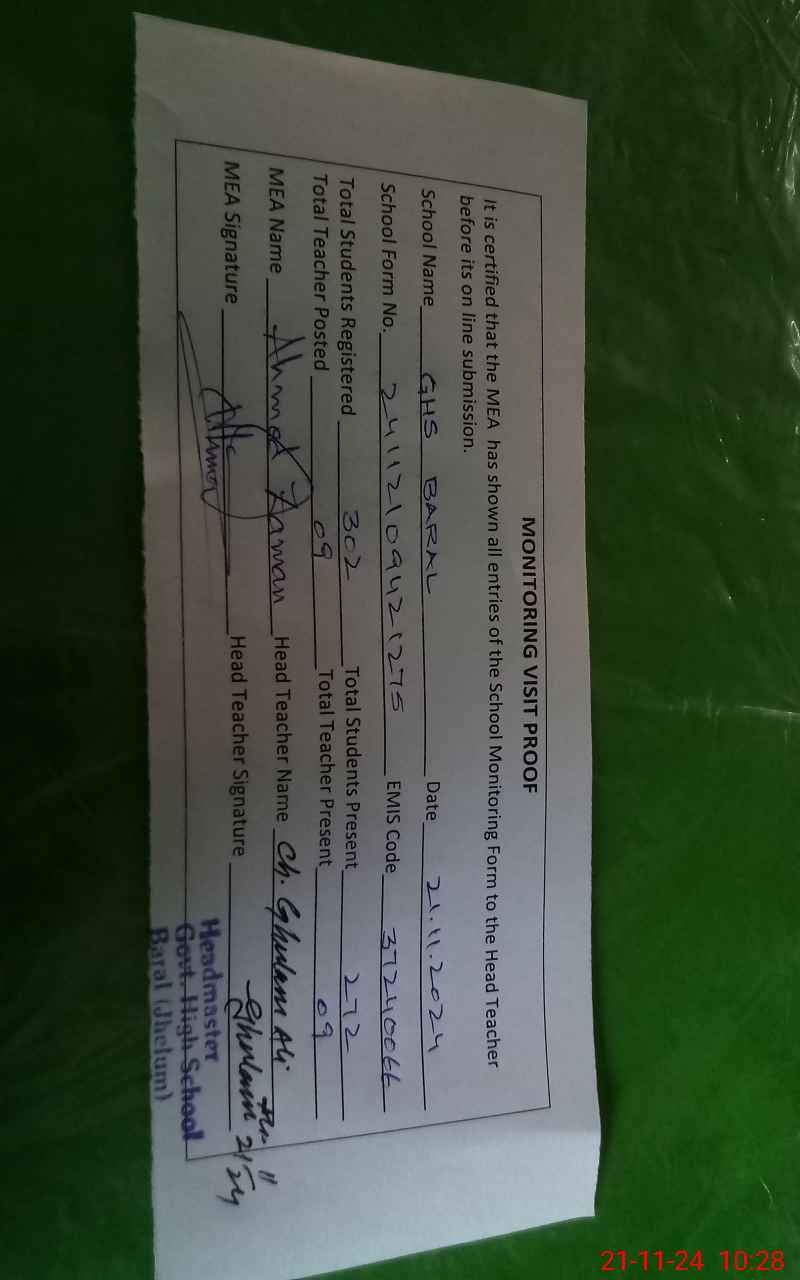 MONITORING VISIT PROOF
It is certified that the MEA has shown all entries of the School Monitoring Form to the Head Teacher
before its on line submission.
School Name GHS BARAL Date 21.11.2024
School Form No. 24112109421275 EMIS Code 37240066
Total Students Registered 302 Total Students Present 272
Total Teacher Posted 09 Total Teacher Present 09
MEA Name Ahmed Zaman Head Teacher Name Ch. Ghulam Ali
MEA Signature Head Teacher Signature Ghulam
Headmaster
Govt. High School
Baral (Jhelum)
21-11-24 10:28